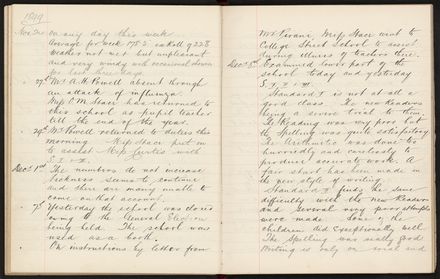 1899
Nov. 24 on any day this week
Average for week 175.2 on Roll of 228
Weather not wet but unpleasant
and very windy with occasional showers
for last three days.
27th Mr A. H. Powell absent through
an attack of influenza.
Miss C. M. Stacer has returned to
this school as pupil teacher
till the end of the year.
29th Mr Powell returned to duties this
morning Miss Stacer put on
to assist Miss Curtis with
S. I & II.
Dec 1st The numbers do not increase
Sickness seems to continue
and there are many unable to
come on that account.
7th Yesterday the school was closed
owing to the General Election
being held. The school was
used as a booth.
On instructions by letter from
Mr Tirani, Miss Stacer went to
College Street School to assist
during illness of teachers there.
Dec 8th Examined lower part of the
school today and yesterday
S. I, II &
Standard I is not at all a
good class. The new Readers
being a severe trial to them.
The Reading was very poor but
the Spelling was quite satisfactory
The Arithmetic was done too
hurriedly and carelessly to
produce accurate work. A
fair start has been made in
the new style of writing.
Standard II finds the same
difficulty with the new Readers
and several very poor attempts
were made. Some of the
children did exceptionally well.
The Spelling was really good
Writing is only on and